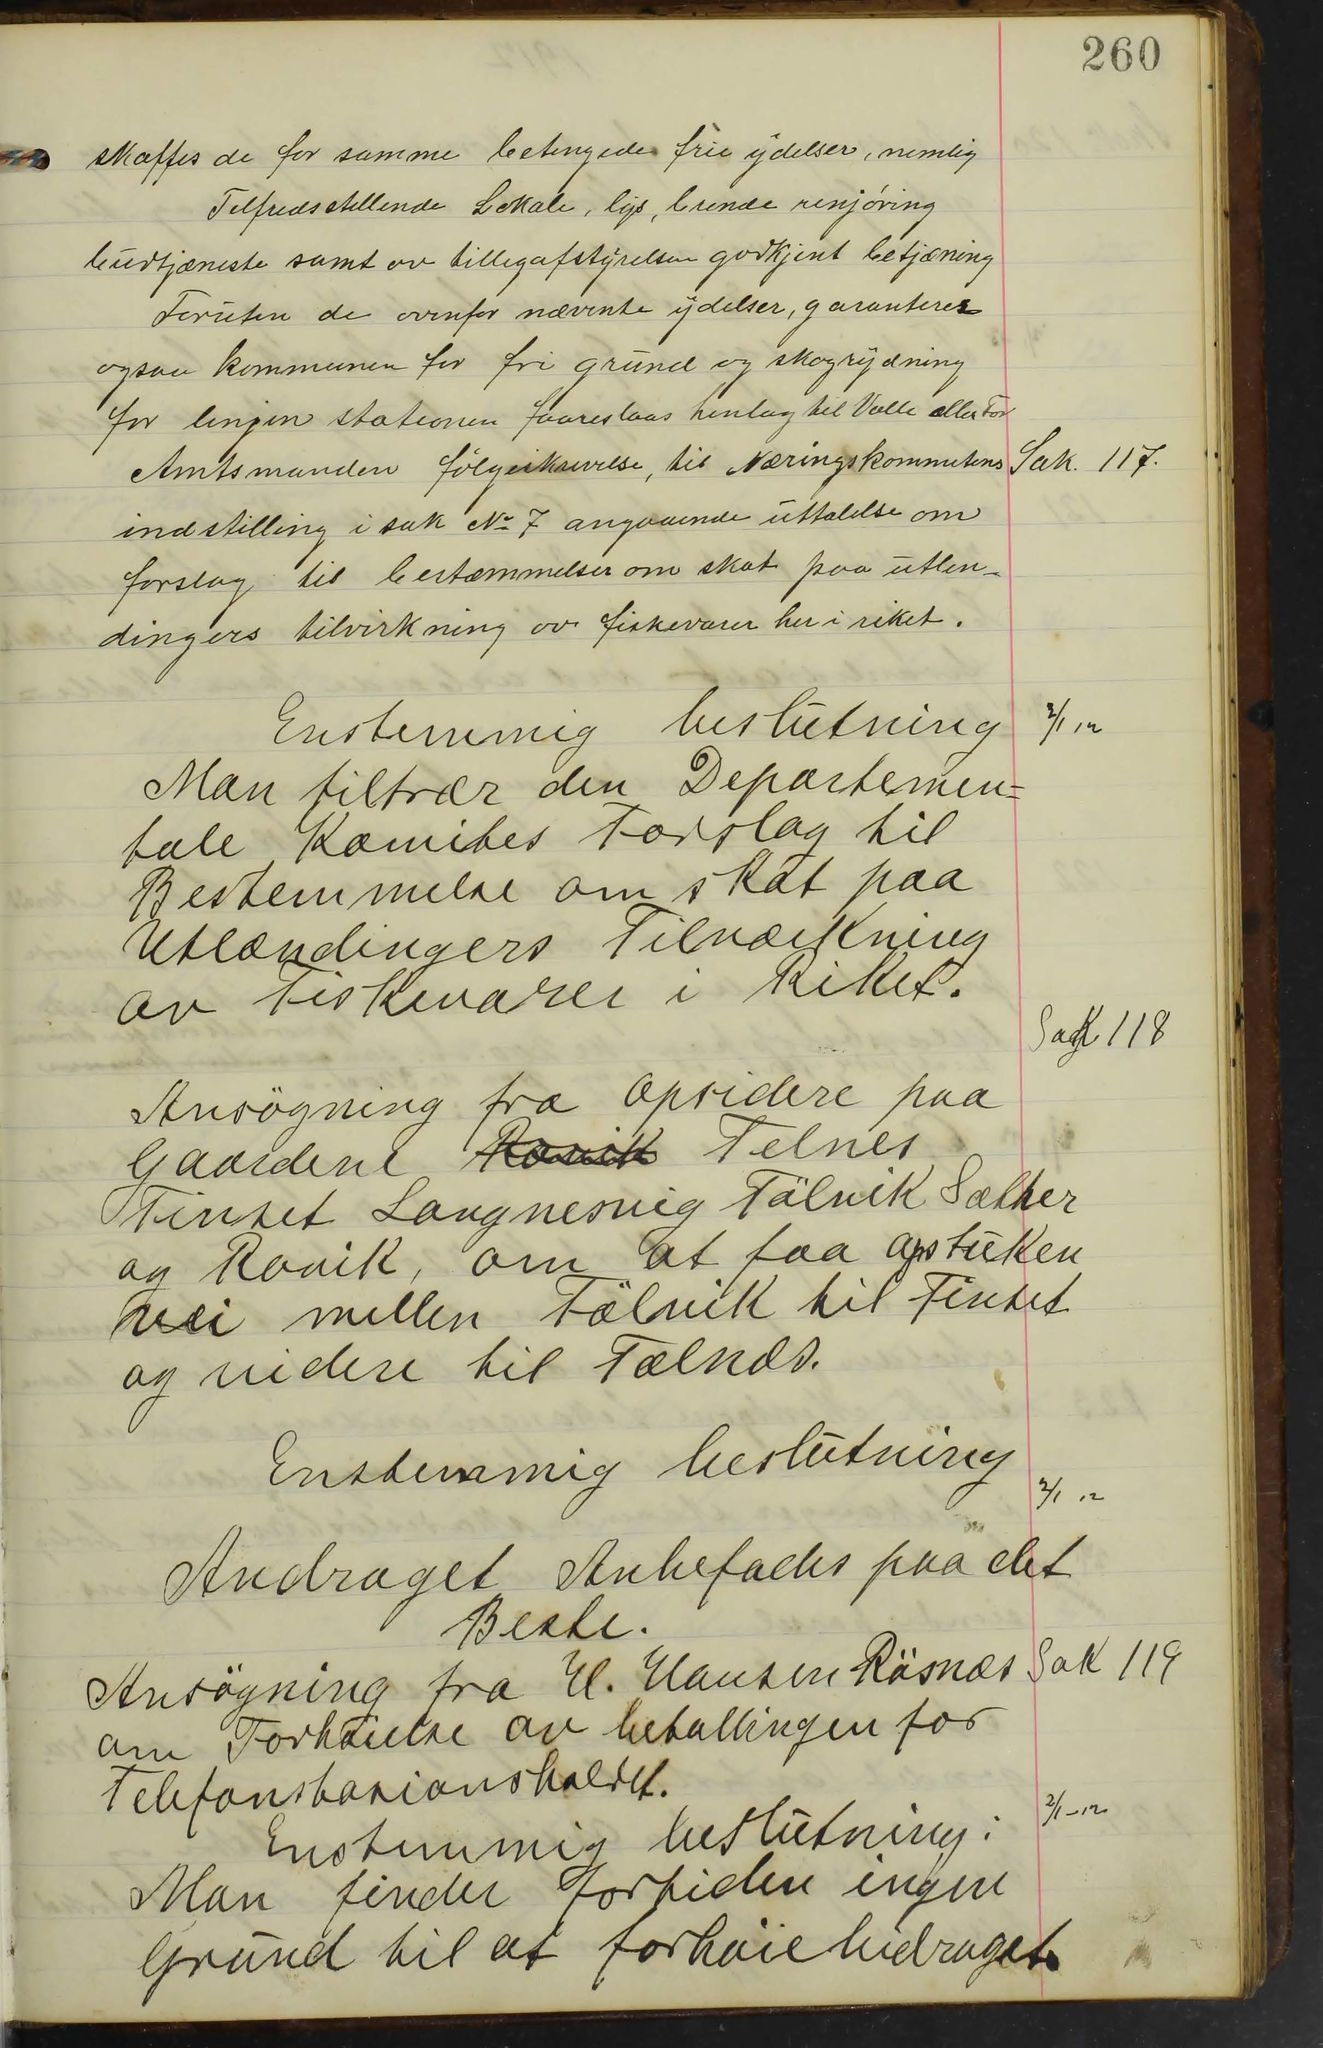 260
skaffes de for samme betingede frie ydelser, nemlig
Tilfredsstillende Lokale, lys, brende renjöring
budtjæneste samt av tillegafstyrelsen godkjent betjæning
Foruten de ovenfor nævnte ydelser, garanterer
ogsaa kommunen for fri grund og skogrydning
for linjen stationen faareslaas henlag til Valle eller Tor
Amtsmanden følgeskrivelse, til Næringskommitens Sak. 117.
indstilling i sak No 7 angaaende uttalelse om
forslag til bestæmmelser om skat paa utlen-
dingers tilvirkning av fiskevarer her i riket.
Enstemmig beslutning 2/1 12
Man tiltrær den Departemen=
tale Komites Forslag til
Bestemmelse om skat paa
Utlændingers Tilværkning
av Fiskevarer i Riket.
Sak 118
Ansögning fra Opsidere paa
Gaardene Ravik Telnes
Finset Langnesvig Tälvik Sæther
og Ravik, om at faa opstuken
vei mellen Tälvik til Finset
og videre til Tælnæs.
Enstemmig beslutning
2/1 12
Andraget Anbefales paa det
Beste.
Ansögning fra H. Hansen Räsnæs Sak 119
om Forhöielse av betallingen for
Telefonstasionsholdet.
Enstemmig beslutning: 2/1-12
Man finder fortiden ingen
Grund til at forhöie bidraget.